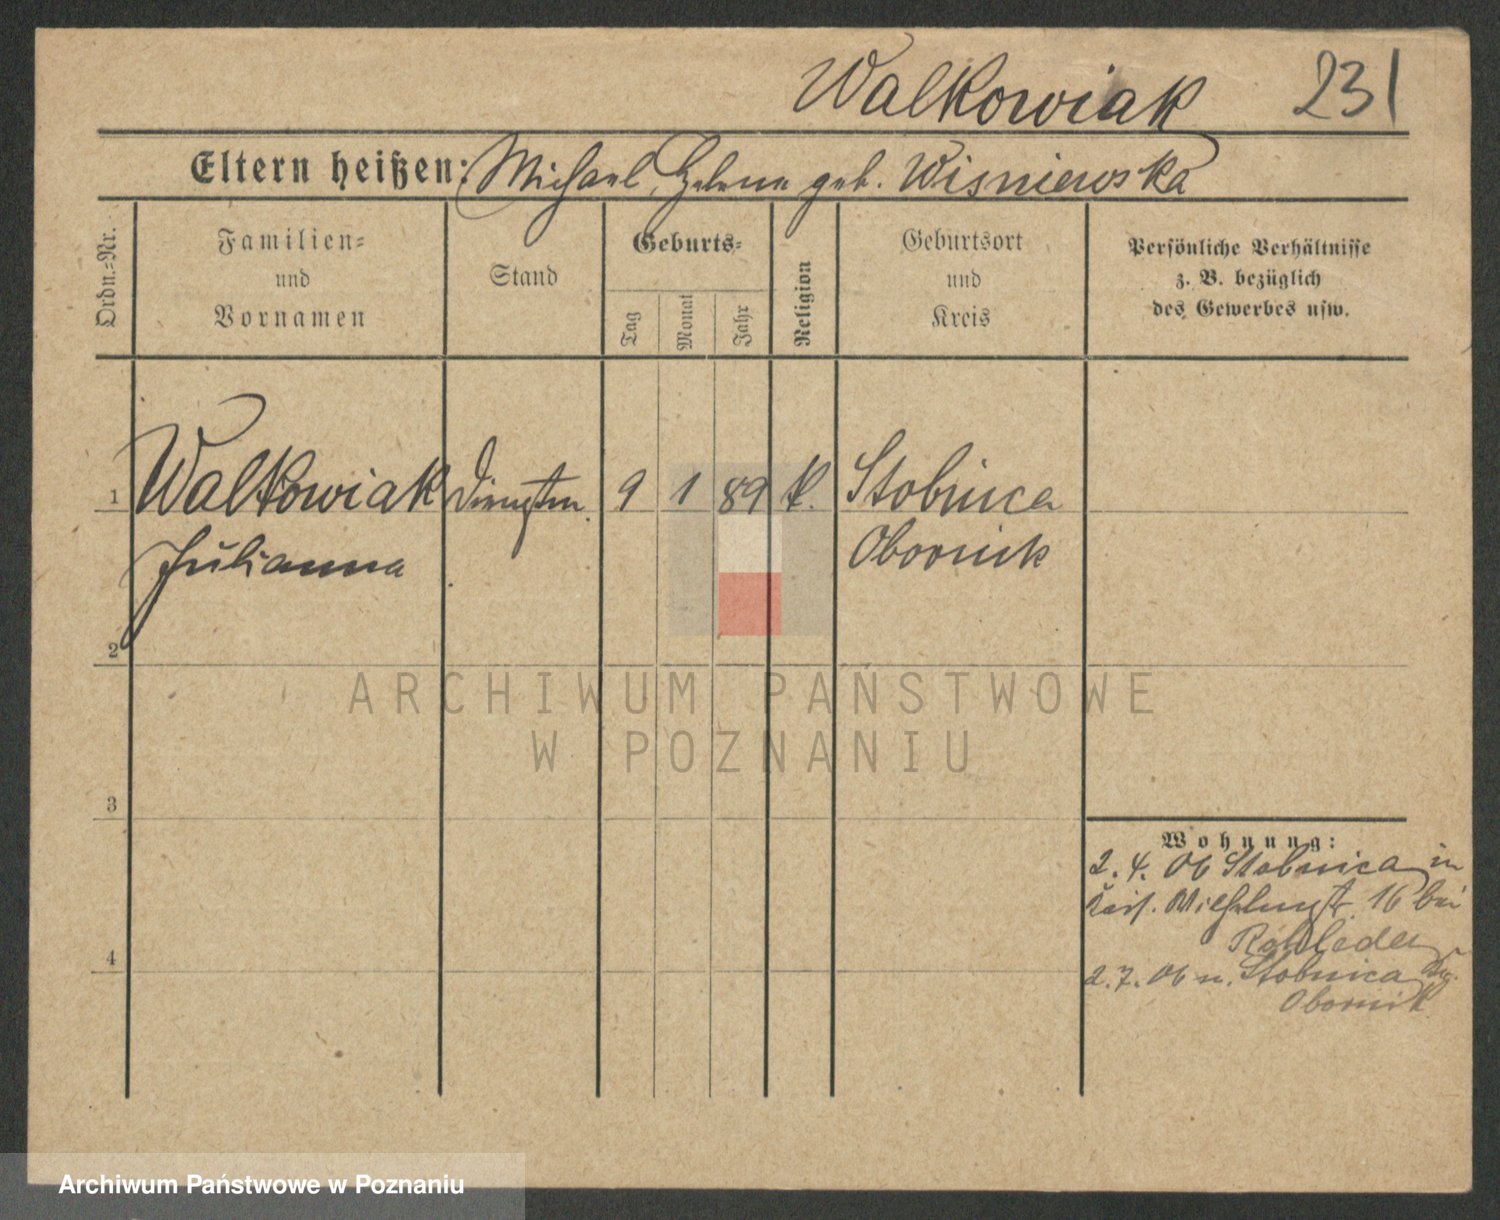 Walkowiak 231
Eltern heißen: Michael, Helene geb. Wisniewska
Ordn.=Nr.
Familien=
und
Vornamen
Stand
Geburts=
Tag
Monat
Jahr
Religion
Geburtsort
und
Kreis
Persönliche Verhältnisse
z. B. bezüglich
des Gewerbes usw.
1 Walkowiak Dienstm. 9 1 89 k. Stobnica
Julianna Obornik
2
ARCHIWUM PAŃSTWOWE
W POZNANIU
3
Wohnung:
2. 4. 06 Stobnica in
Kais. Wilhelmstr. 16 bei
Rohleder
4
2. 7. 06 n. Stobnica
Obornik
Archiwum Państwowe w Poznaniu